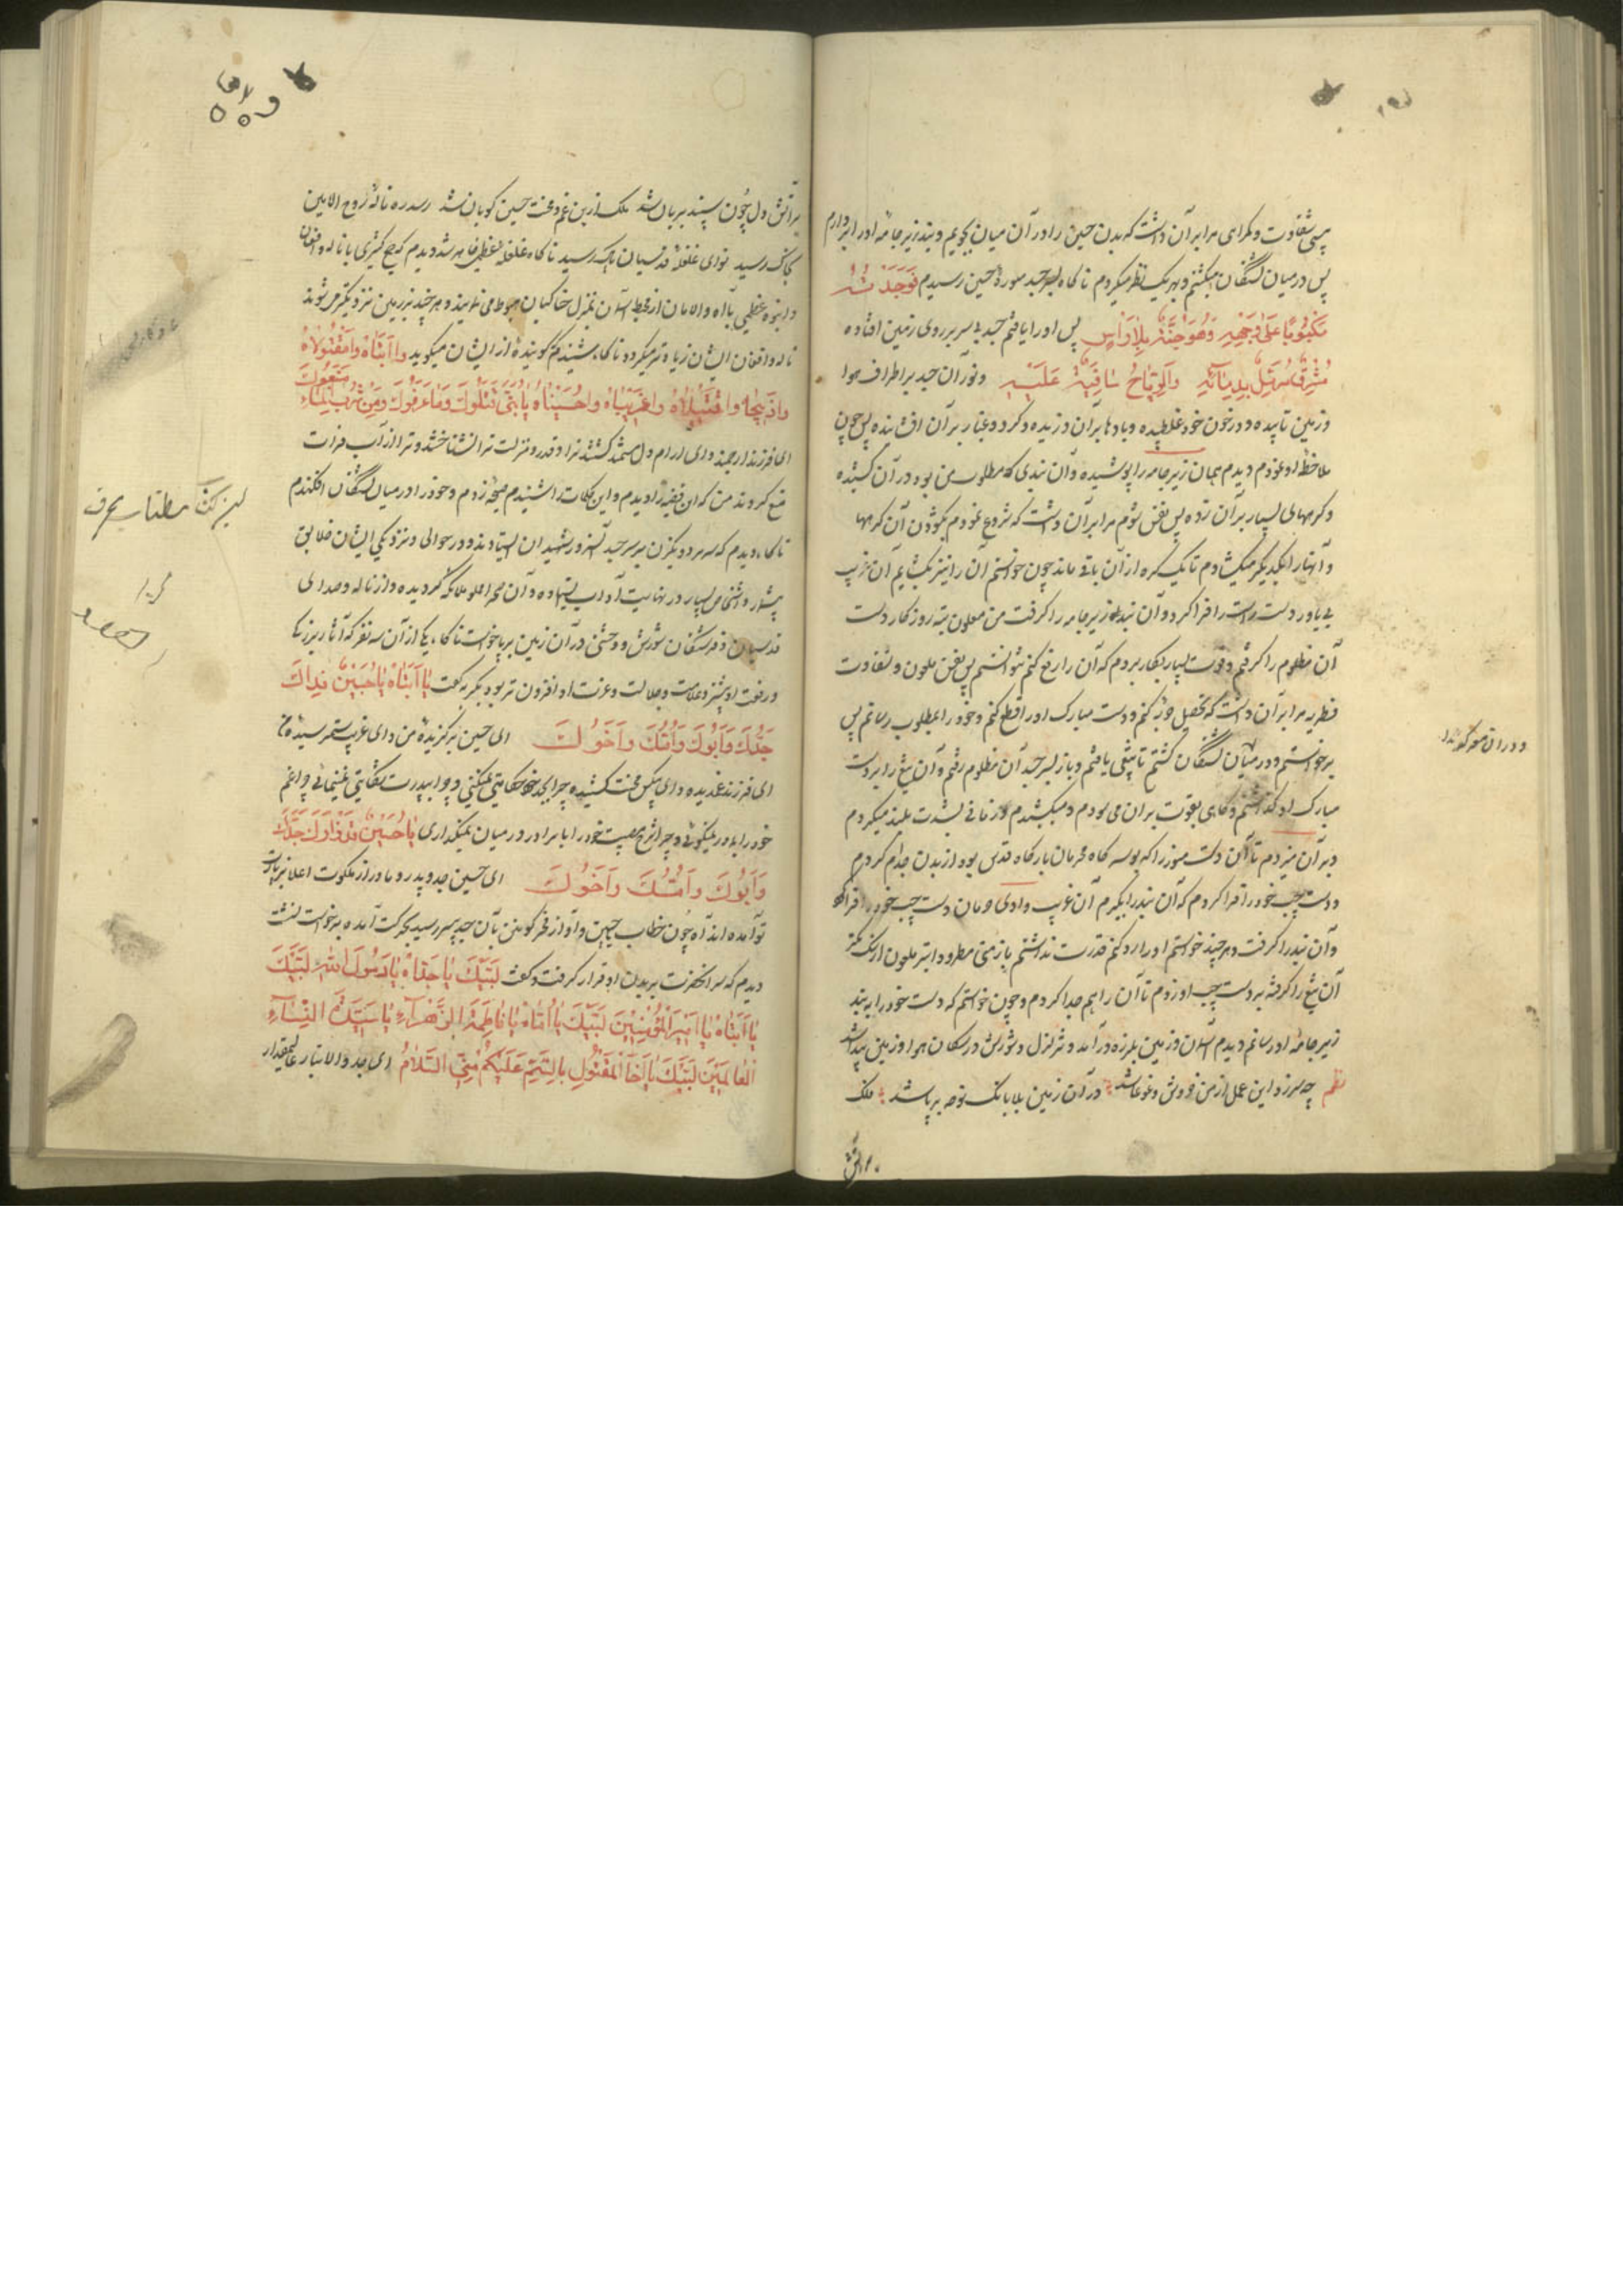 پس شقاوت و گمراهی مرا بر آن داشت که بدن حسین را در آن میان بجویم و بند زیر جامهٔ او را بردارم
پس در میان کشتگان میگشتم و بهر یک نظر میکردم تا گاه بسر جسد منور حسین رسیدم فَوَجَدْتُهُ
مَكْبُوبًا عَلَى وَجْهِهِ وَهُوَ جُثَّةٌ بِلَا رَأْسٍ پس او را یافتم جسد بی سر بر روی زمین افتاده
مُرَمَّلٌ بِدِمَائِهِ وَالرِّيَاحُ سَافِيَةٌ عَلَيْهِ و نور آن جسد بر اطراف هوا
و زمین تابیده و در خون خود غلطیده و بادها بر آن وزیده و گرد و غبار بر آن افشانده پس چون
ملاحظه او نمودم دیدم همان زیر جامه را پوشیده و آن بندی که مطلوب من بود در آن کشیده
و گرههای بسیار بر آن زده پس نفس شوم مرا بر آن داشت که شروع نمودم بگشودن آن گرهها
و آنها را از یکدیگر میگشادم تا یک گره از آن باقی ماند چون خواستم آن را نیز بگشایم آن غریب
بی یاور دست راست را فرا کرد و آن بند زیر جامه را گرفت من ملعون تیره روزگار دست
آن مظلوم را گرفتم و قوت بسیار بکار بردم که آن را رفع کنم نتوانستم پس نفس ملعون و شقاوت
فطریه مرا بر آن داشت که تحصیل حربه کنم و دست مبارک او را قطع کنم و خود را بمطلوب رسانم پس
برخواستم و در میان کشتگان گشتم تا تیغی یافتم و باز بسر جسد آن مظلوم رفتم و آن تیغ را بر دست
مبارک او گذاشتم و گاهی بقوت بر آن می سودم و میکشیدم و زمانی بشدت بلند میکردم
و بر آن میزدم تا آن دست منور را که بوسه گاه محرمان بارگاه قدس بود از بدن جدا کردم
و دست چپ خود را فرا کردم که آن بند را بگیرم آن غریب وادی حرمان دست چپ خود را فرا کرد
و آن بند را گرفت و هر چند خواستم او را رد کنم قدرت نداشتم باز من مطرود ابتر ملعون از سگ کمتر
آن تیغ را گرفته بر دست چپ او زدم تا آن را هم جدا کردم و چون خواستم که دست خود را به بند
زیر جامه او رسانم دیدم آسمان و زمین بلرزه در آمد و تزلزل و شورش در سکان هوا و زمین پیدا شد
نظم چه سر زد این عمل از من خروش و غوغا شد در آن زمین بلا بانگ نوحه بر پا شد ملک
بر آتش
بر آتش دل چون سپند بریان شد ملک ازین غم و محنت حسین گویان شد رسد ره ناله روح الامین
بگاش رسید نوای غلغله قدسیان بآن رسید ناگاه غلغله عظیم ظاهر شد و دیدم که جمع کثیری با ناله و افغان
و انبوه عظیمی با آه و الامان از محیط آسمان بمنزل خاکیان هبوط می نمایند و هر چند بزمین نزدیکتر میشوند
ناله و افغان ایشان زیاده تر میگردد ناگاه شنیدم گوینده از ایشان میگوید وا اَبَتَاهْ وَامَقْتُولَاهُ
وَاذَبِيحَاه وَاقَتِيلَاهُ وَاغَرِيبَاهُ وَاحُسَيْنَاهُ يَا بُنَيَّ قَتَلُوكَ وَمَا عَرَفُوكَ وَمِنْ شُرْبِ الْمَاءِ مَنَعُوكَ
ای فرزند ارجمند و ای آرام دل مستمند کشتند ترا و قدر و منزلت ترا نشناختند و ترا از آب فرات
منع کردند من که این قضیه را دیدم و این کلمات را شنیدم صیحه زدم و خود را در میان کشتگان افکندم
ناگاه دیدم که سه مرد و یک زن بر سر جسد آن سرور شهیدان ایستادند و در حوالی و نزدیکی ایشان خلایق
بیشمار و اشخاص بسیار در نهایت آداب ایستاده و آن صحرا مملو ملائکه گردیده و از ناله و صدای
قدسیان و فرشتگان شورش و وحشتی در آن زمین برپا خواست ناگاه یکی از آن سه نفر که آثار بزرگی
و رفعت او بیشتر و علامت و جلالت و عزت او افزون تر بود بگریه گفت يَا ابَتَاهْ يَا حُسَيْنُ فِدَاكَ
جَدُّكَ وَاَبُوكَ وَاُمُّكَ وَاَخُوكَ ای حسین برگزیده من و ای غریب ستم رسیده من
ای فرزند غمدیده و ای بیکس محنت کشیده چرا بجد خود حکایتی نمیکنی و چرا بپدرت شکایتی نمینمائی چرا غم
خود را بمادر نمیگوئی و چرا شرح مصیبت خود را با برادر در میان نمیگذاری يَا حُسَيْنُ جَدُّكَ
وَاَبُوكَ وَاُمُّكَ وَاَخُوكَ ای حسین جد و پدر و مادر از ملکوت اعلا بزیارت
تو آمده اند آه چون خطاب و آواز فخر کونین بآن جسد بی سر رسید بحرکت آمده برخواست نشست
دیدم که سر آنحضرت بر بدن او قرار گرفت و گفت لَبَّيْكَ يَا جَدَّاهْ يَا رَسُولَ اللهِ لَبَّيْكَ
يَا اَبَتَاهْ يَا اَمِيرَ الْمُؤْمِنِينَ لَبَّيْكَ يَا اُمَّاهْ يَا فَاطِمَةَ الزَّهْرَاءِ يَا سَيِّدَةَ النِّسَاءِ
الْعَالَمِينَ لَبَّيْكَ يَا اَخَا الْمَقْتُولِ بِالسَّمِّ عَلَيْكُمْ مِنِّي السَّلَامُ ای جد والاتبار عالیمقدار